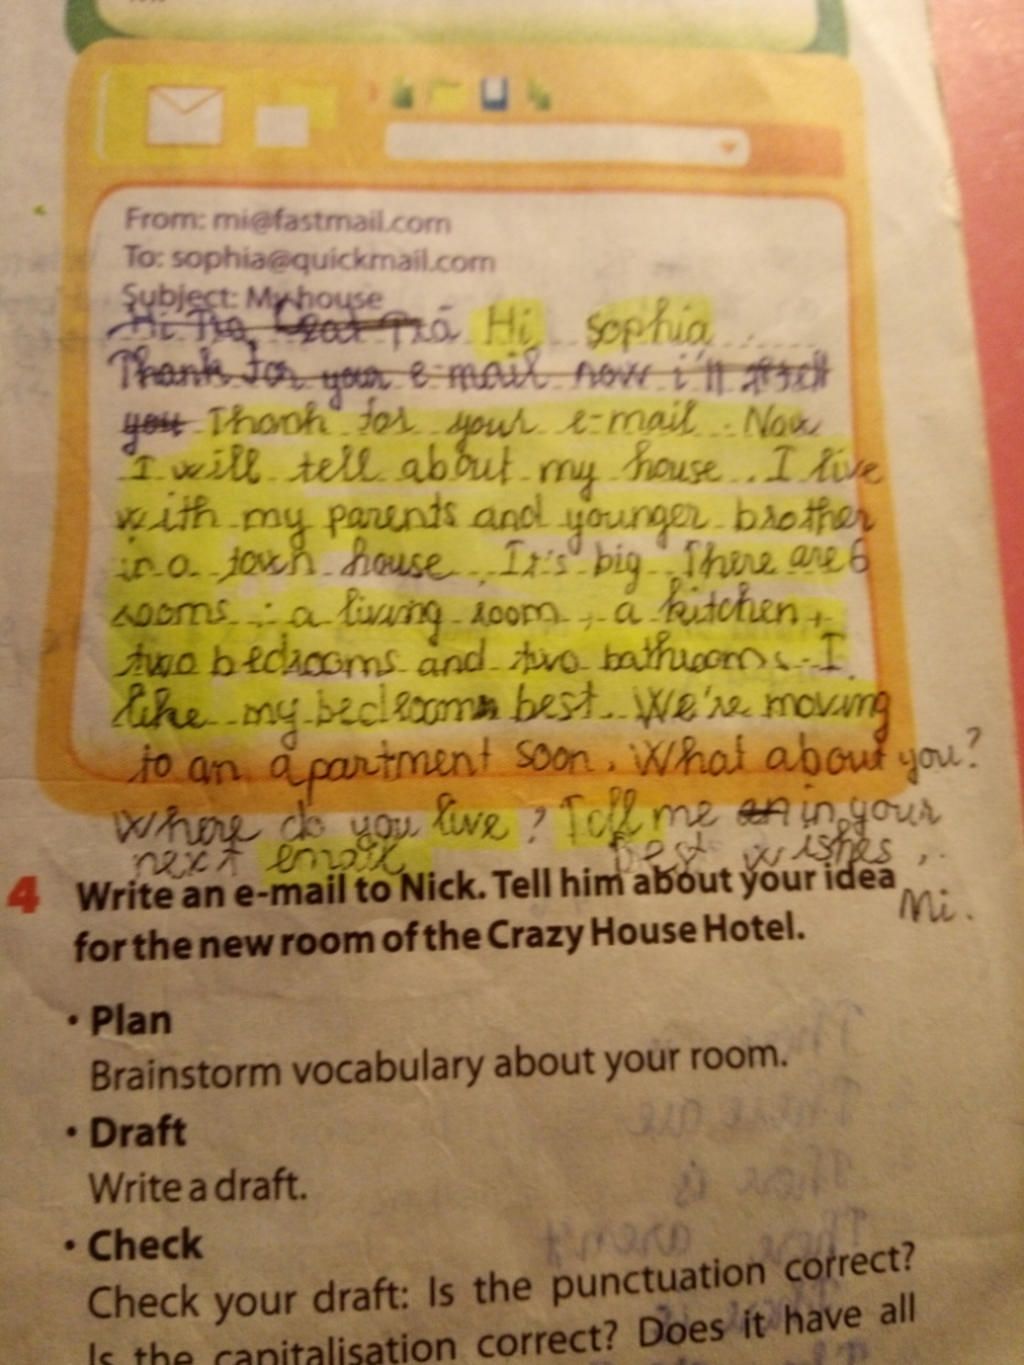 From: mi@fastmail.com
To: sophia@quickmail.com
Subject: My house
Hi Sophia
Thank for your e-mail now i'll tell
you Thank for your e-mail. Now
I will tell about my house. I live
with my parents and younger brother
in a town house. It's big. There are 6
rooms: a living room, a kitchen,
two bedrooms and two bathrooms. I
like my bedroom best. We're moving
to an apartment soon. What about you?
Where do you live? Tell me in your
next email
Best wishes,
Mi.
4 Write an e-mail to Nick. Tell him about your idea
for the new room of the Crazy House Hotel.
• Plan
Brainstorm vocabulary about your room.
• Draft
Write a draft.
• Check
Check your draft: Is the punctuation correct?
Is the capitalisation correct? Does it have all